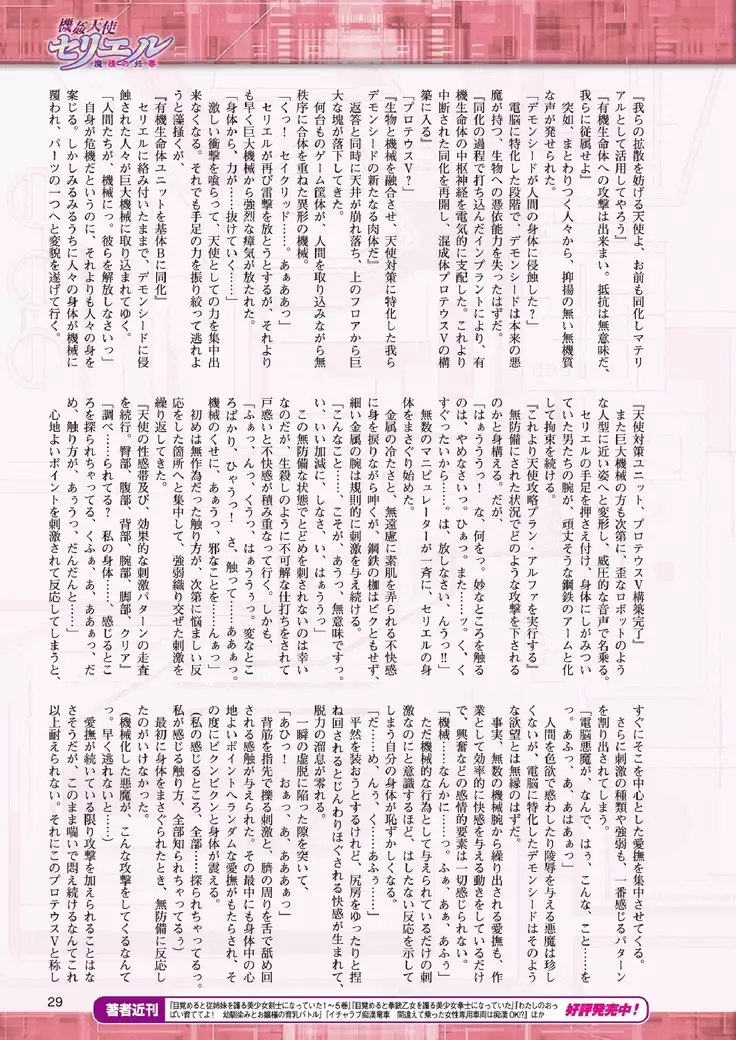 機姦天使
セリエル
魔機の妊辱
『我らの拡散を妨げる天使よ、お前も同化しマテリ
アルとして活用してやろう』
『有機生命体への攻撃は出来まい。抵抗は無意味だ、
我らに従属せよ』
突如、まとわりつく人々から、抑揚の無い無機質
な声が発せられた。
「デモンシードが人間の身体に侵蝕した?」
電脳に特化した段階で、デモンシードは本来の悪
魔が持つ、生物への憑依能力を失ったはずだ。
『同化の過程で打ち込んだインプラントにより、有
機生命体の中枢神経を電気的に支配した。これより
中断された同化を再開し、混成体プロテウスVの構
築に入る』
「プロテウスV?」
『生物と機械を融合させ、天使対策に特化した我ら
デモンシードの新たなる肉体だ』
返答と同時に天井が崩れ落ち、上のフロアから巨
大な塊が落下してきた。
何台ものゲーム筐体が、人間を取り込みながら無
秩序に合体を重ねた異形の機械。
「くっ! セイクリッド……。あぁああっ」
セリエルが再び雷撃を放とうとするが、それより
も早く巨大機械から強烈な瘴気が放たれた。
「身体から、力が……抜けていく……」
激しい衝撃を喰らって、天使としての力を集中出
来なくなる。それでも手足の力を振り絞って逃れよ
うと藻掻くが、
『有機生命体ユニットを基体Bに同化』
セリエルに絡み付いたままで、デモンシードに侵
蝕された人々が巨大機械に取り込まれてゆく。
「人間たちが、機械にっ。彼らを解放しなさいっ」
自身が危機だというのに、それよりも人々の身を
案じる。しかしみるみるうちに人々の身体が機械に
覆われ、パーツの一つへと変貌を遂げて行く。
『天使対策ユニット、プロテウスV構築完了』
また巨大機械の方も次第に、歪なロボットのよう
な人型に近い姿へと変形し、威圧的な音声で名乗る。
セリエルの手足を押さえ付け、身体にしがみつい
ていた男たちの腕が、頑丈そうな鋼鉄のアームと化
して拘束を続ける。
『これより天使攻略プラン・アルファを実行する』
無防備にされた状況でどのような攻撃を下される
のかと身構える。だが、
「はぁうううっ! な、何をっ。妙なところを触る
のは、やめなさいっ。ひぁっ。また……ッ。く、く
すぐったいから……。は、放しなさい、んうっ!!」
無数のマニピュレーターが一斉に、セリエルの身
体をまさぐり始めた。
金属の冷たさと、無遠慮に素肌を弄られる不快感
に身を捩りながら呻くが、鋼鉄の枷はビクともせず、
細い金属の腕は規則的に刺激を与え続ける。
「こんなこと……、こそが、あうっ、無意味ですっ。
い、いい加減に、しなさ、い、はぁううっ」
この無防備な状態でとどめを刺されないのは幸い
なのだが、生殺しのように不可解な仕打ちをされて
戸惑いと不快感が積み重なって行く。しかも、
「ふぁっ、んっ、くうっ、はぁううぅっ。変なとこ
ろばかり、ひゃうっ! さ、触って……ああぁっ。
機械のくせに、あぁうっ、邪なことを……んぁっ」
初めは無作為だった触り方が、次第に悩ましい反
応をした箇所へと集中して、強弱織り交ぜた刺激を
繰り返してきた。
『天使の性感帯及び、効果的な刺激パターンの走査
を続行。臀部、腹部、背部、腕部、脚部、クリア』
「調べ……られてる? 私の身体……、感じるとこ
ろを探られちゃってる、くふぁ、あ、ああぁっ、だ
め、触り方が、あぅうっ、だんだんと……」
心地よいポイントを刺激されて反応してしまうと、
すぐにそこを中心とした愛撫を集中させてくる。
さらに刺激の種類や強弱も、一番感じるパターン
を割り出されてしまう。
「電脳悪魔が、なんで、はぅ、こんな、こと……を
っ。あふっ、あ、あはあぁっ」
人間を色欲で惑わしたり陵辱を与える悪魔は珍し
くないが、電脳に特化したデモンシードはそのよう
な欲望とは無縁のはずだ。
事実、無数の機械腕から繰り出される愛撫も、作
業として効率的に快感を与える動きをしているだけ
で、興奮などの感情的要素は一切感じられない。
「機械……なんかに……っ。ふぁ、あぁ、あふぅ」
ただ機械的な行為として与えられているだけの刺
激なのにと意識するほど、はしたない反応を示して
しまう自分の身体が恥ずかしくなる。
「だ……め、んぅ、く……あふぅ……」
平然を装おうとするけれど、尻房をゆったりと捏
ね回されるとじんわりほぐされる快感が生まれて、
脱力の溜息が零れる。
一瞬の虚脱に陥った隙を突いて、
「あひっ! おぁっ、あ、あああぁっ」
背筋を指先で擽る刺激と、臍の周りを舌で舐め回
される感触が与えられた。その最中にも身体中の心
地よいポイントへランダムな愛撫がもたらされ、そ
の度にビクンビクンと身体が震える。
(私の感じるところ、全部……探られちゃってるっ。
私が感じる触り方、全部知られちゃってるぅ)
最初に身体をまさぐられたとき、無防備に反応し
たのがいけなかった。
(機械化した悪魔が、こんな攻撃をしてくるなんて
っ。早く逃れないと……)
愛撫が続いている限り攻撃を加えられることはな
さそうだが、このまま喘いで悶え続けるなんてこれ
以上耐えられない。それにこのプロテウスVと称し
29
著者近刊
『目覚めると従姉妹を護る美少女剣士になっていた1~5巻』『目覚めると拳銃乙女を護る美少女拳士になっていた』『わたしのおっ
ぱい育ててよ! 幼馴染みとお嬢様の育乳バトル』『イチャラブ痴漢電車 間違えて乗った女性専用車両は痴漢OK!?』ほか
好評発売中!